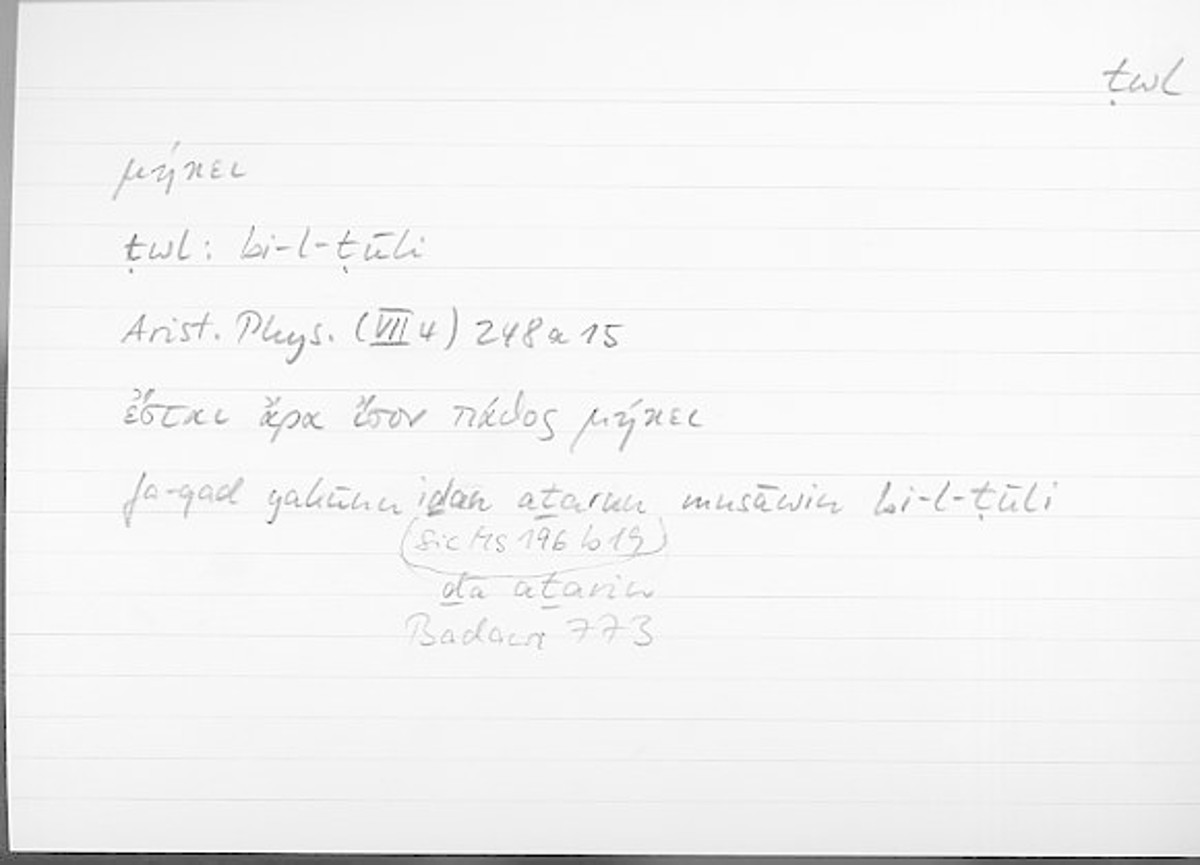 ṭwl
μήκει
ṭwl: bi-l-ṭūli
Arist. Phys. (VII 4) 248a15
ἔσται ἄρα ἴσον πάθος μήκει
fa-qad yakūnu iḏan aṯarun musāwin bi-l-ṭūli
(sic Ms 196b19)
ḏā aṯarin
Badawī 773